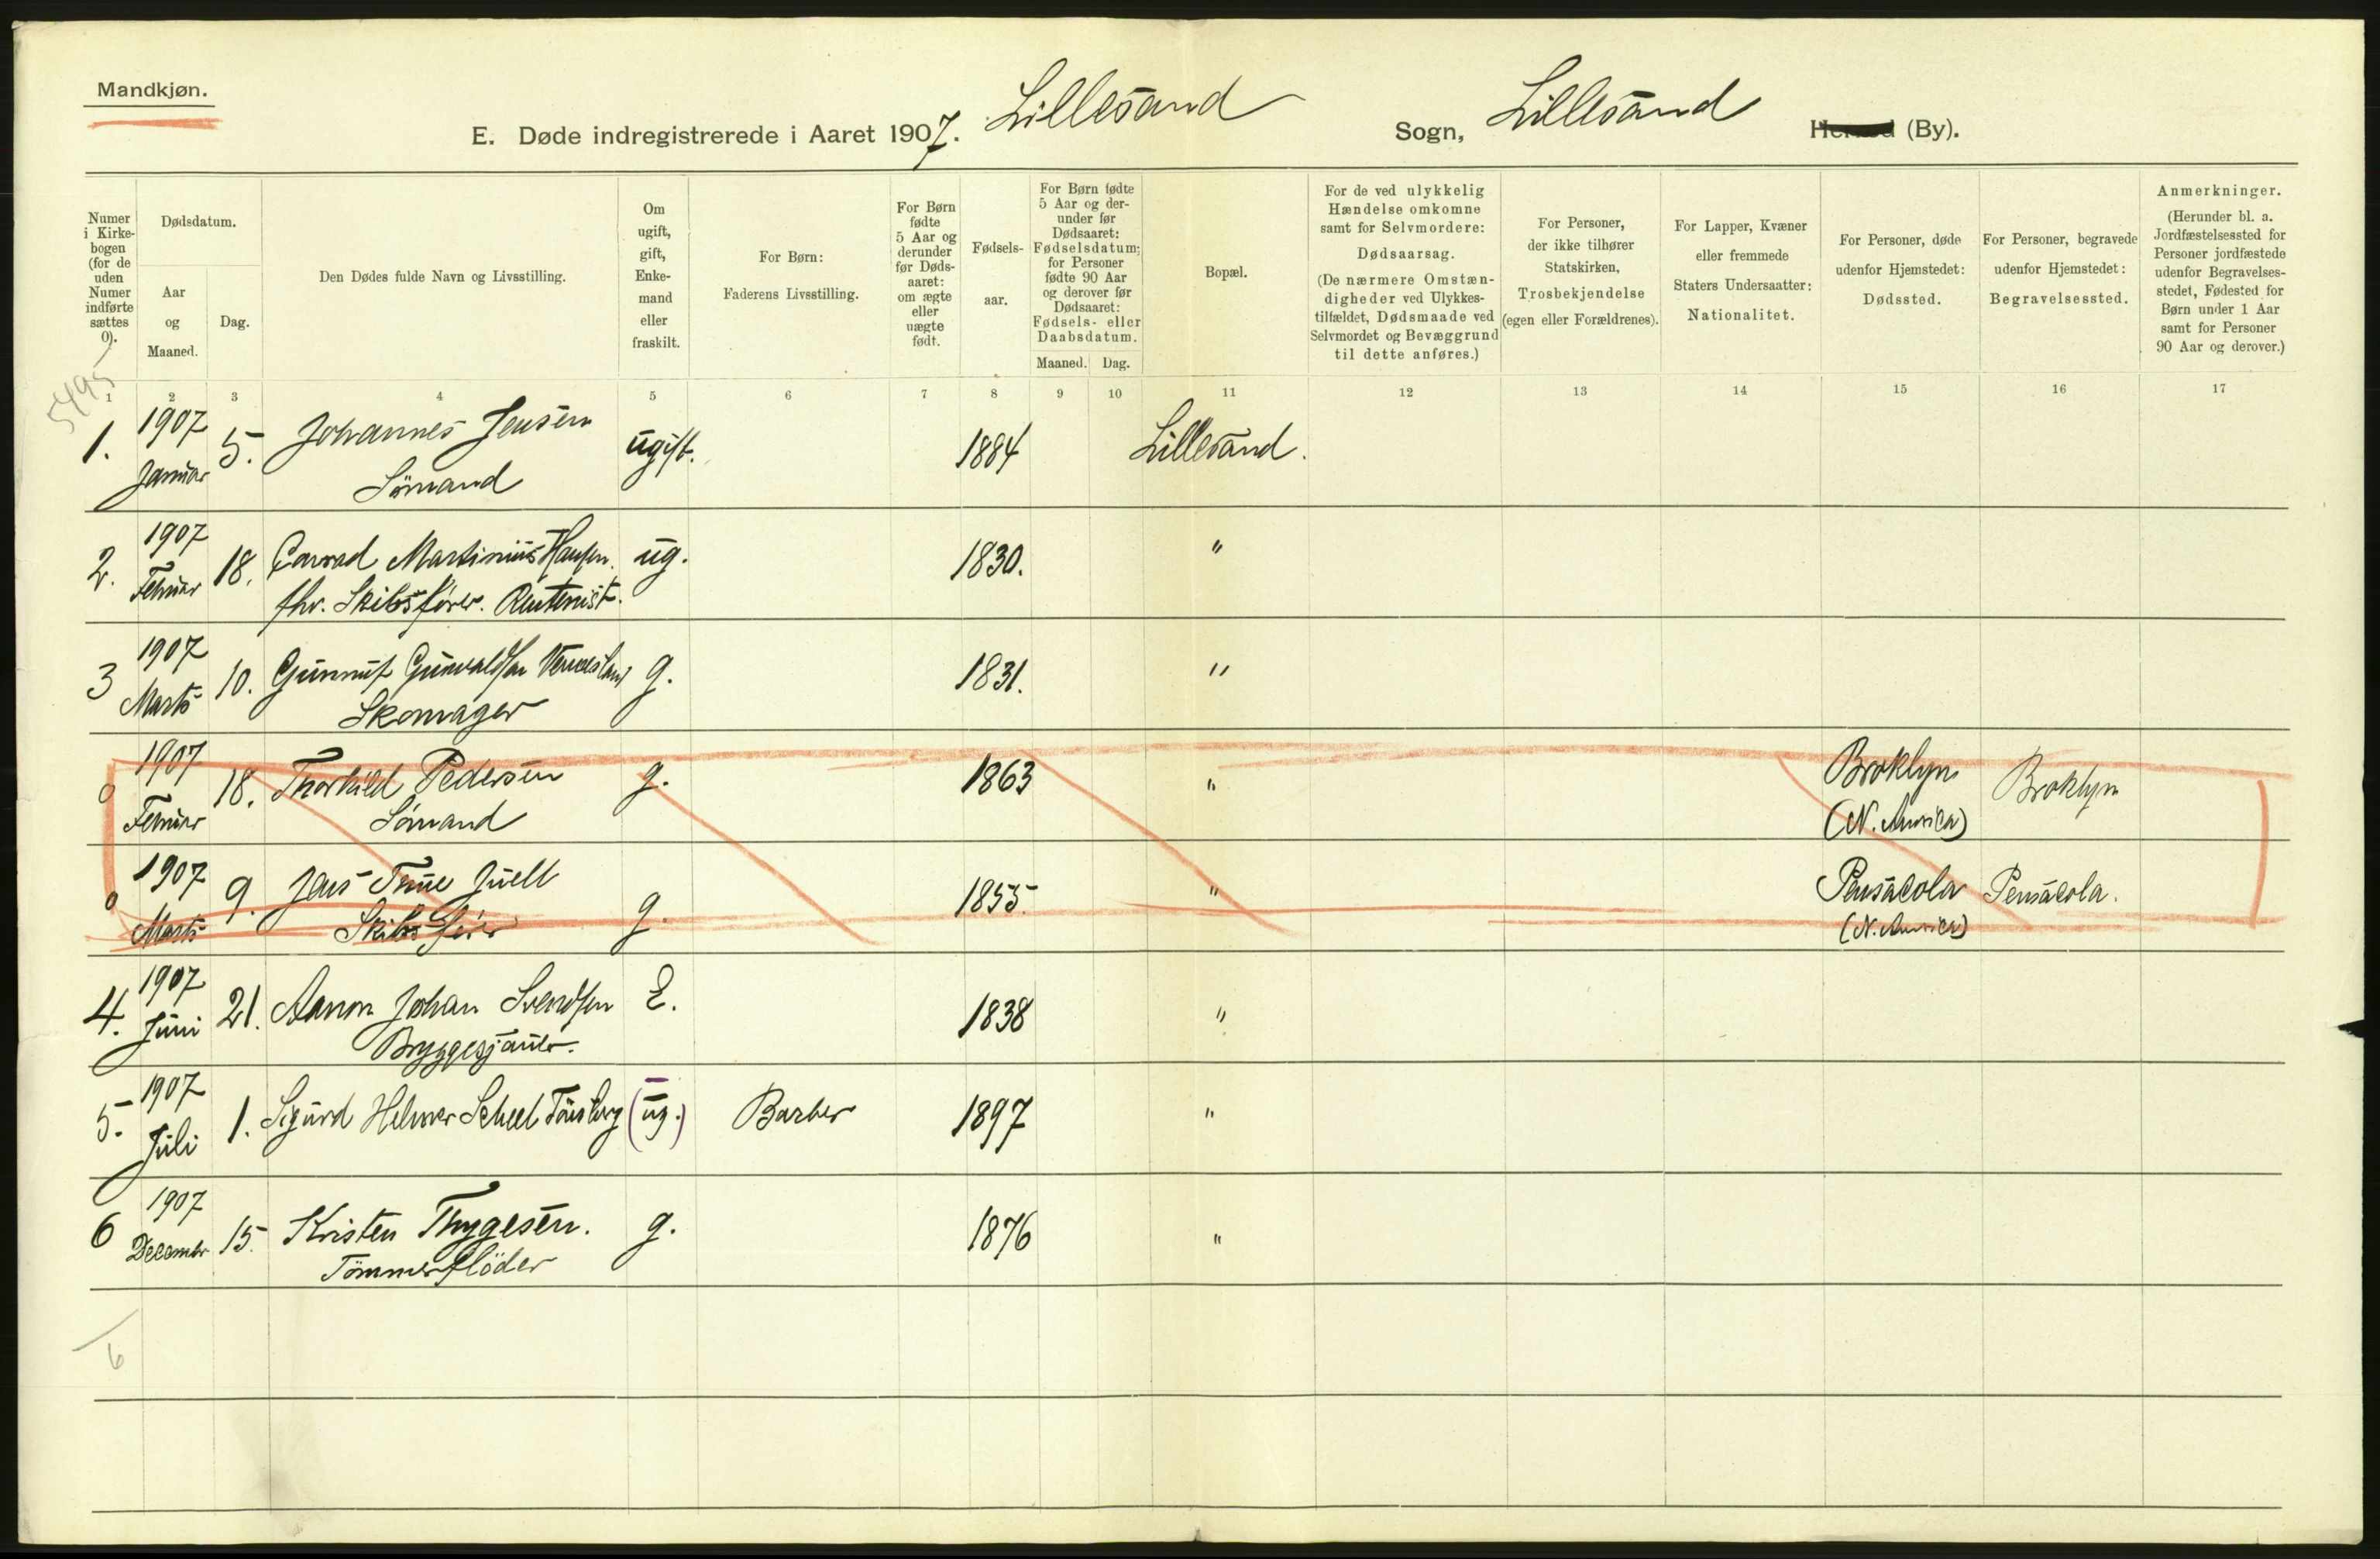 Mandkjøn.
E. Døde indregistrerede i Aaret 1907. Lillesand Sogn, Lillesand Herred (By).
Numer i Kirke-bogen (for de uden Numer indførte sættes 0).
Dødsdatum.
Aar og Maaned.
Dag.
Den Dødes fulde Navn og Livsstilling.
Om ugift, gift, Enke-mand eller fraskilt.
For Børn: Faderens Livsstilling.
For Børn fødte 5 Aar og derunder før Døds-aaret: om ægte eller uægte født.
Fødsels-aar.
For Børn fødte 5 Aar og der-under før Dødsaaret: Fødselsdatum; for Personer fødte 90 Aar og derover før Dødsaaret: Fødsels- eller Daabsdatum.
Maaned. Dag.
Bopæl.
For de ved ulykkelig Hændelse omkomne samt for Selvmordere: Dødsaarsag. (De nærmere Omstæn-digheder ved Ulykkes-tilfældet, Dødsmaade ved Selvmordet og Bevæggrund til dette anføres.)
For Personer, der ikke tilhører Statskirken, Trosbekjendelse (egen eller Forældrenes).
For Lapper, Kvæner eller fremmede Staters Undersaatter: Nationalitet.
For Personer, døde udenfor Hjemstedet: Dødssted.
For Personer, begravede udenfor Hjemstedet: Begravelsessted.
Anmerkninger. (Herunder bl. a. Jordfæstelsessted for Personer jordfæstede udenfor Begravelses-stedet, Fødested for Børn under 1 Aar samt for Personer 90 Aar og derover.)
5495
1 2 3 4 5 6 7 8 9 10 11 12 13 14 15 16 17
1. 1907 Januar 5. Johannes Jensen ugift. 1884 Lillesand.
Sømand
2. 1907 Februar 18. Conrad Martinius Hansen. ug. 1830. "
fhv. Skibsfører. Rentenist.
3 1907 Marts 10. Gunnuf Gunvaldsen Vennesland g. 1831. "
Skomager
0 1907 Februar 18. Thorkild Pedersen g. 1863 " Broklyn Broklyn
Sømand (N. America)
0 1907 Marts 9. Jens Thue Juell g. 1855. " Pensacola Pensacola.
Skibsfører (N. America)
4. 1907 Juni 21. Aanon Johan Svendsen E. 1838 "
Bryggesjauer.
5. 1907 Juli 1. Sigurd Helmer Scheel Tønsberg (ug.) Barber 1897 "
6 1907 December 15. Kristen Thygesen. g. 1876 "
Tömmerflöder
6